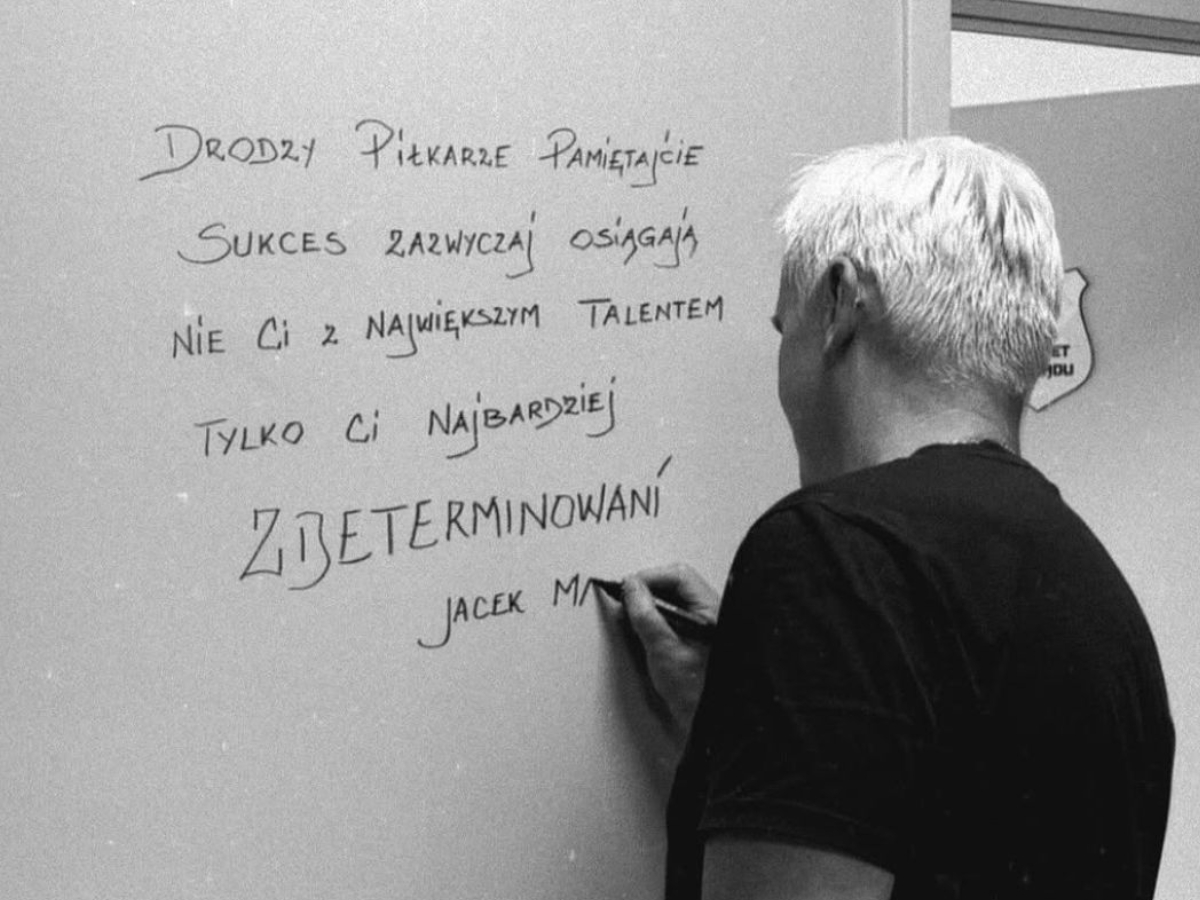 Drodzy Piłkarze Pamiętajcie
Sukces zazwyczaj osiągają
Nie Ci z Największym Talentem
Tylko Ci Najbardziej
ZDETERMINOWANI
Jacek